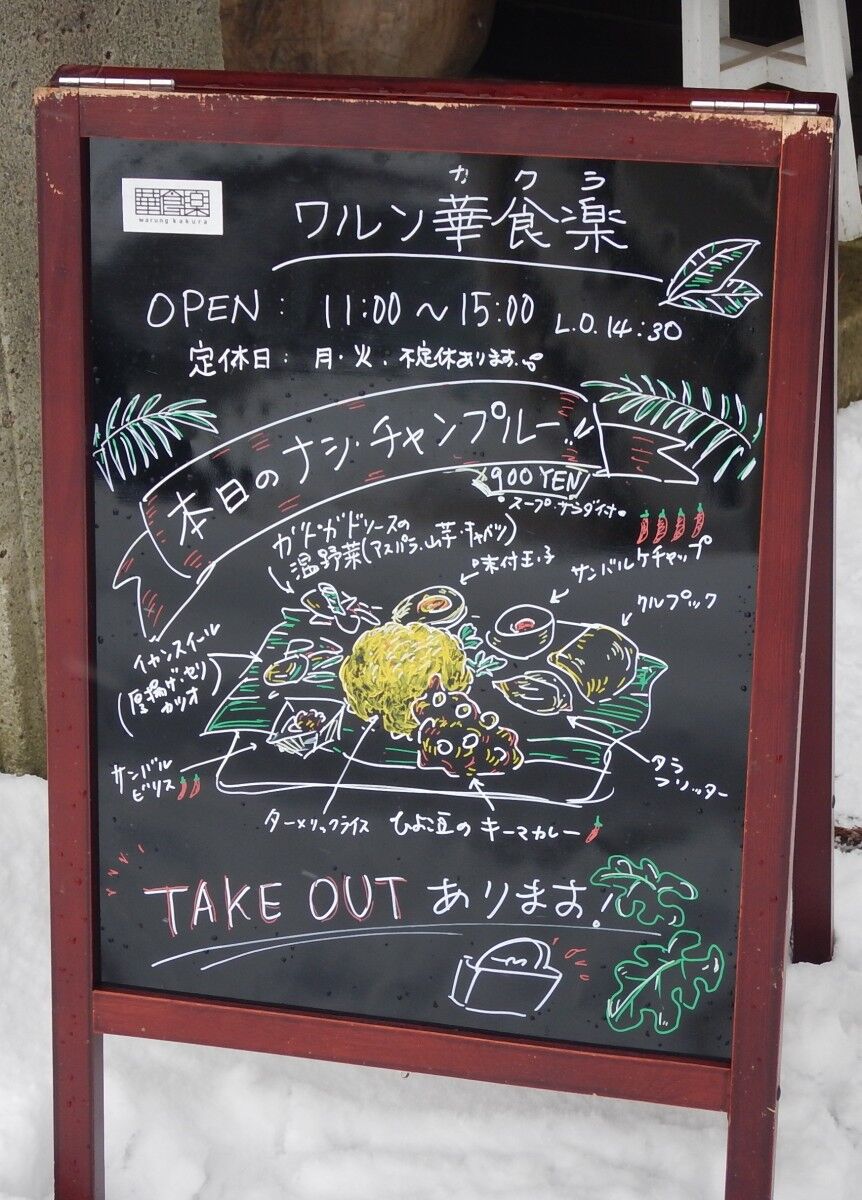 華食楽
warung kakura
カクラ
ワルン華食楽
OPEN : 11:00 〜 15:00 L.O. 14:30
定休日: 月・火・不定休あります。
本日のナシ・チャンプルー
900 YEN
スープ・サラダ付
ガドガドソースの
温野菜(アスパラ・山芋・キャベツ)
味付玉子
サンバルケチャップ
クルプック
イカンスイール
(厚揚げ・セリ
カツオ)
サンバル
ビリス
タラ
フリッター
ターメリックライス
ひよこ豆のキーマカレー
TAKE OUT あります!